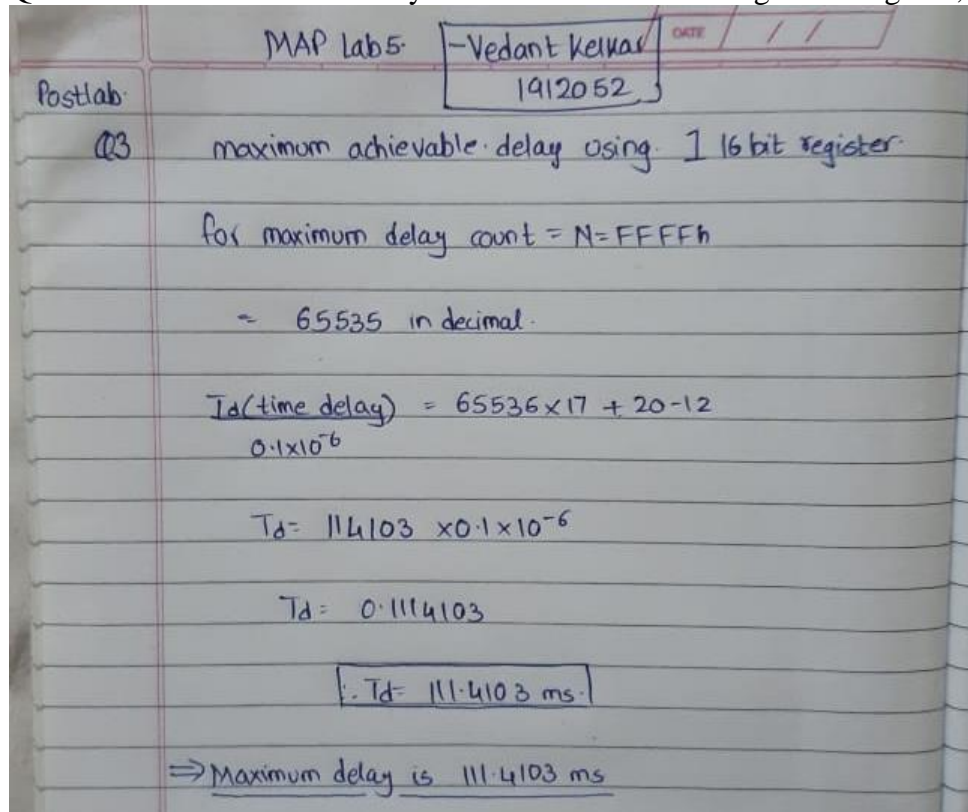 MAP Lab 5. - Vedant Kelkar DATE / /
1912052
Postlab.
Q3 maximum achievable delay using 1 16 bit register.
for maximum delay count = N = FFFFh
= 65535 in decimal.
Td (time delay) = 65536 × 17 + 20 - 12
0.1×10⁻⁶
Td = 114103 × 0.1 × 10⁻⁶
Td = 0.1114103
∴ Td = 111.4103 ms.
⇒ Maximum delay is 111.4103 ms